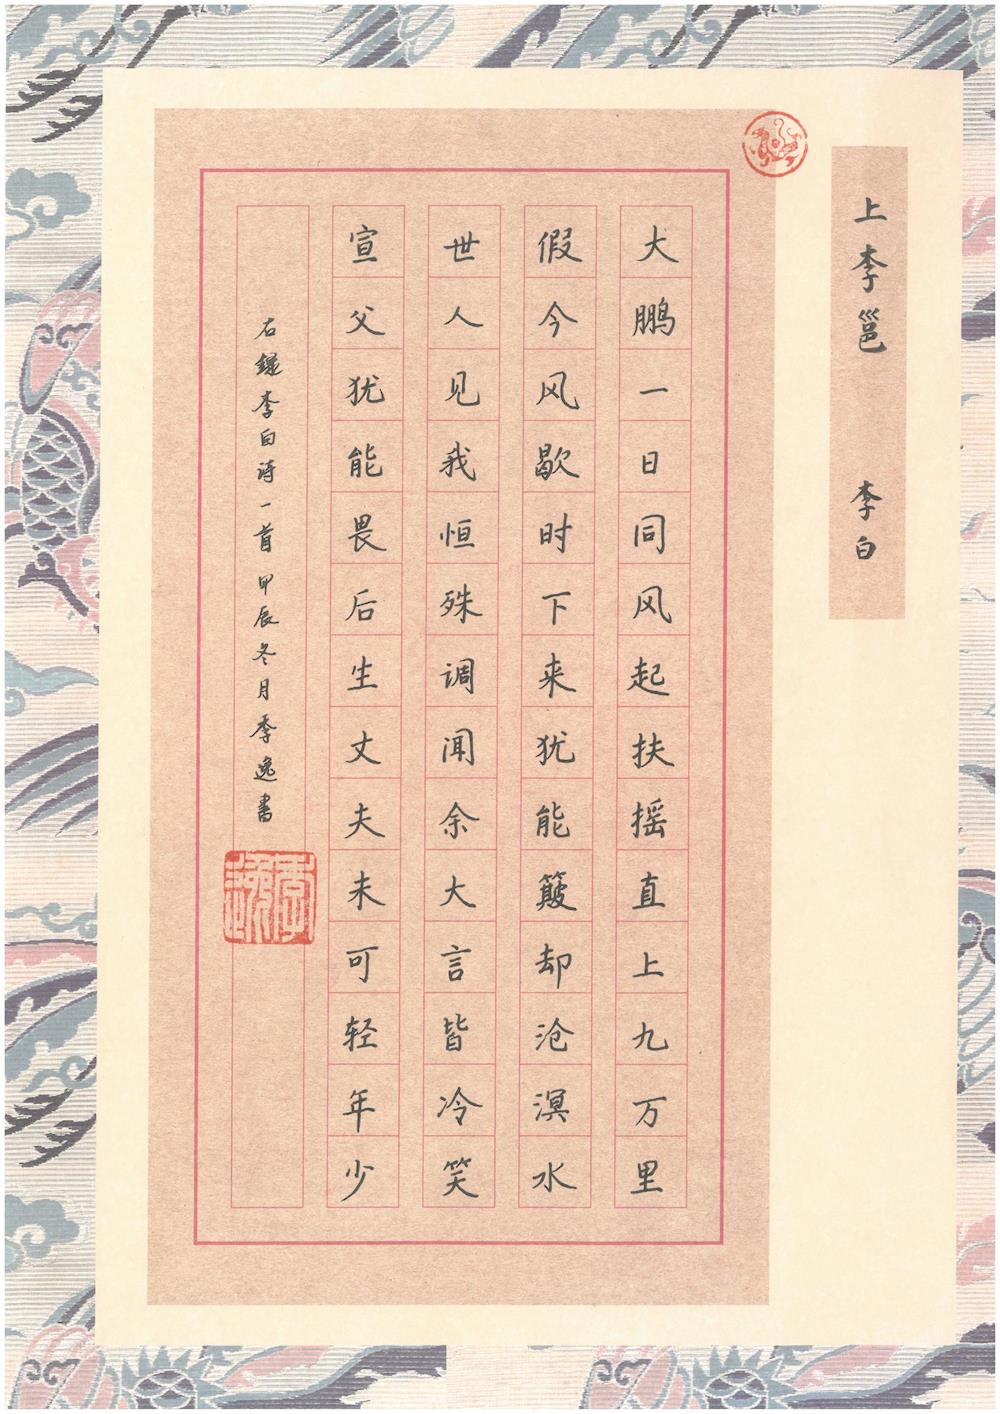 上李邕 李白
大鹏一日同风起扶摇直上九万里
假今风歇时下来犹能簸却沧溟水
世人见我恒殊调闻余大言皆冷笑
宣父犹能畏后生丈夫未可轻年少
右録李白诗一首 甲辰冬月季逸書
季逸